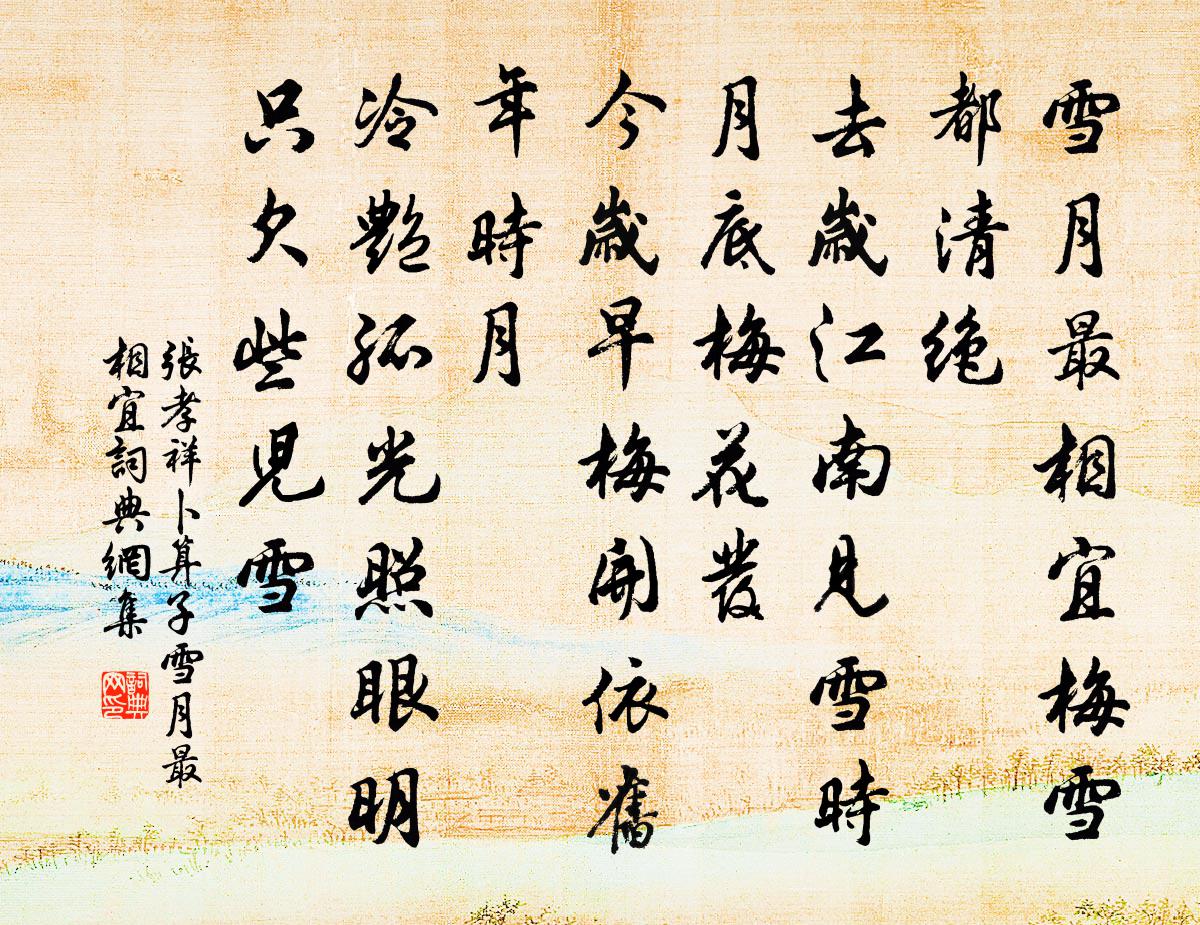 雪月最相宜梅雪
都清絶
去歲江南見雪時
月底梅花發
今歲早梅開依舊
年時月
冷艷孤光照眼明
只欠些兒雪
張孝祥卜算子雪月最
相宜詞典網集
詞典
网印